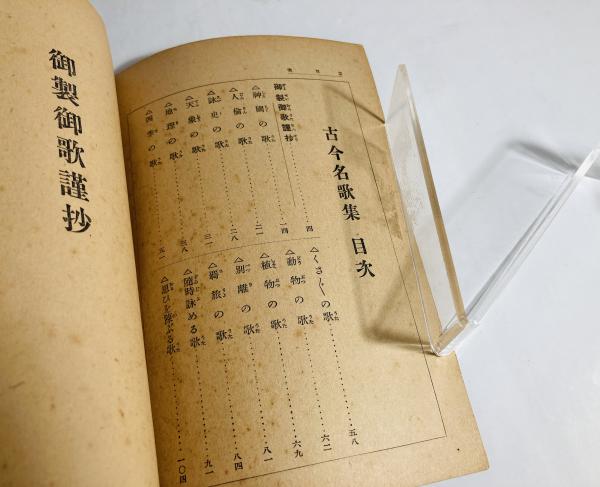 古今名歌集 目次
御製御歌謹抄………四
△神國の歌………一四
△人倫の歌………二一
△詠史の歌………二八
△天象の歌………三一
△地理の歌………三八
△四季の歌………五一
△くさ〴〵の歌………五八
△動物の歌………六二
△植物の歌………六九
△別離の歌………八一
△羇旅の歌………八四
△隨時詠める歌………九一
△思ひを陳ぶる歌………一〇四
御製御歌謹抄